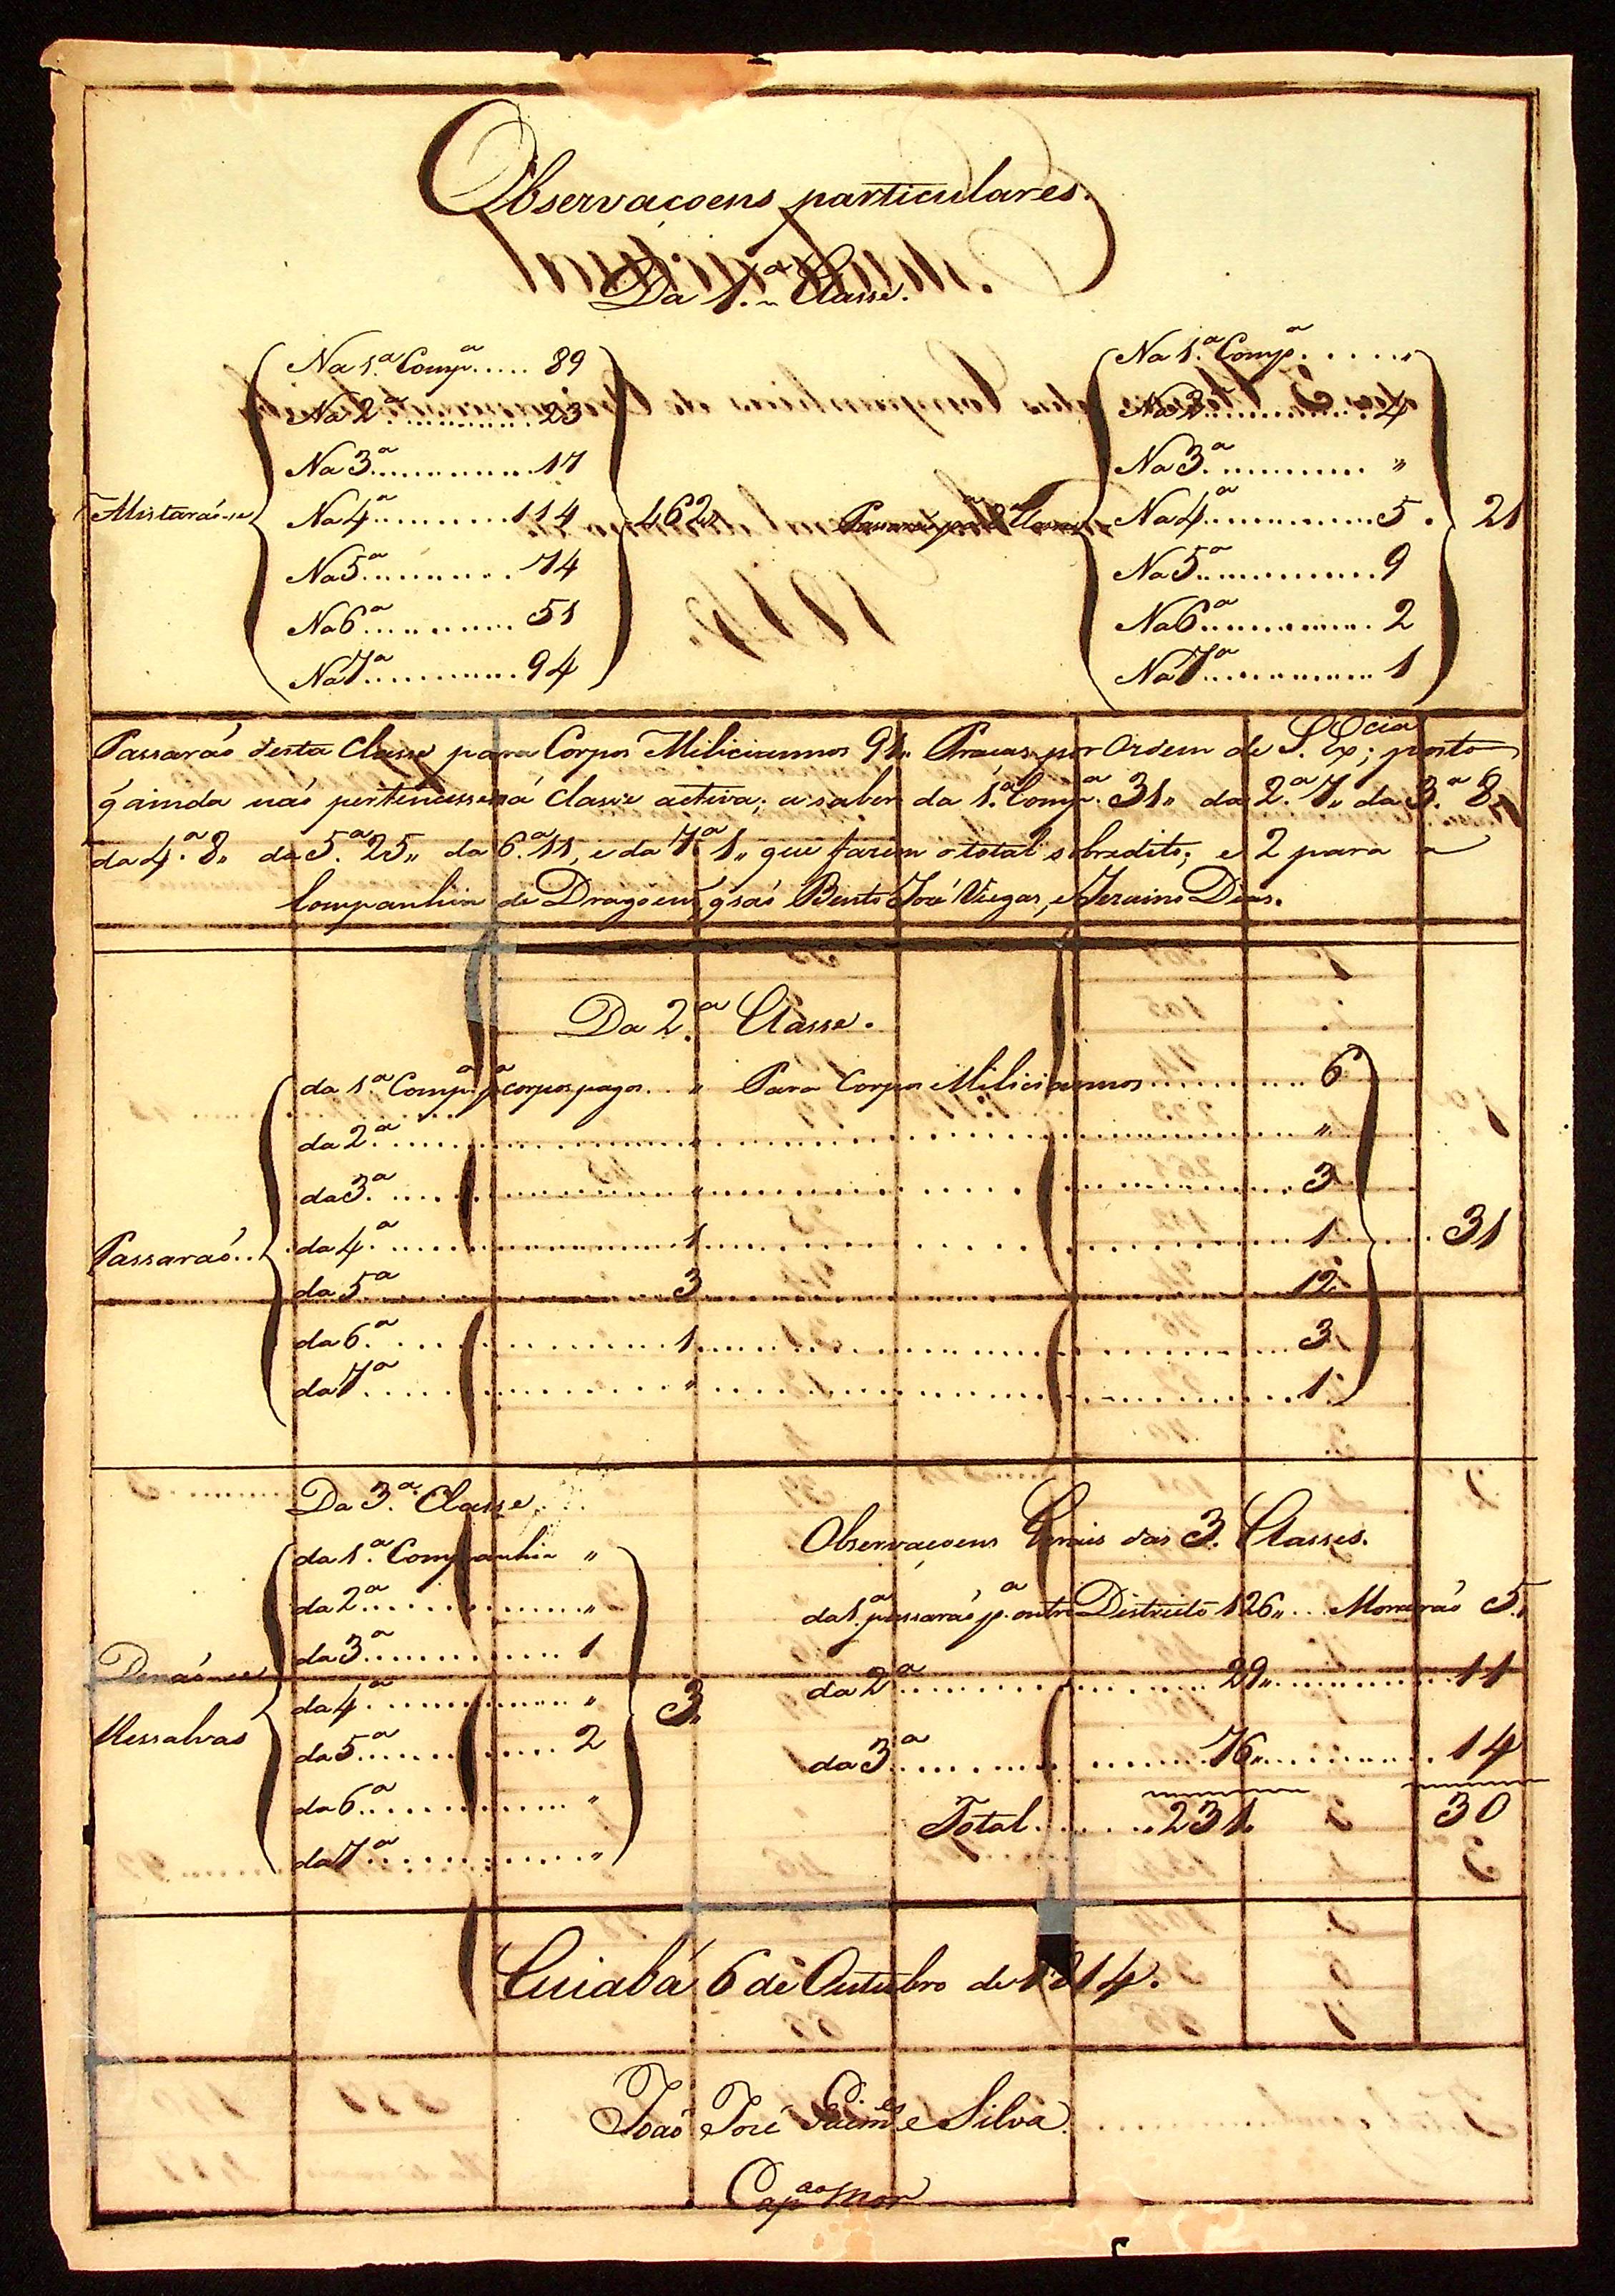 Observaçoens particulares.
Da 1.ª Classe.
Alistarão-se
Na 1.ª Comp.ª ..... 89
Na 2.ª ............ 23
Na 3.ª ............ 17
Na 4.ª .......... 114
Na 5.ª .......... 74
Na 6.ª .......... 51
Na 7.ª .......... 94
462
Passarão p.ª 2.ª Classe
Na 1.ª Comp.ª ...... "
Na 2.ª ............ 4
Na 3.ª ............ "
Na 4.ª ............ 5
Na 5.ª ............ 9
Na 6.ª ............ 2
Na 7.ª ............ 1
21
Passarão desta Classe para Corpos Miliciannos 91" Praças por Ordem de S. Ex.cia; posto
q̃ ainda não pertencessem á Classe activa; a saber da 1.ª Comp.ª 31" da 2.ª 7" da 3.ª 8"
da 4.ª 8" da 5.ª 25" da 6.ª 11, e da 7.ª 1" que fazem o total sobredito; e 2 para a
Companhia de Dragoens, q̃ são Bento José Viegas, e Dias.
Da 2.ª Classe.
Passarão ..
da 1.ª Comp.ª p.ª corpos pagos .. " Para Corpos Miliciannos .......... 6
da 2.ª .......... " .......... "
da 3.ª .......... " .......... 3
da 4.ª .......... 1 .......... 1
da 5.ª .......... 3 .......... 12
da 6.ª .......... 1 .......... 3
da 7.ª .......... " .......... 1
31
Da 3.ª Classe.
Derão-se
Ressalvas
da 1.ª Companhia "
da 2.ª .......... "
da 3.ª .......... 1
da 4.ª .......... "
da 5.ª .......... 2
da 6.ª .......... "
da 7.ª .......... "
3"
Observaçoens Geraes das 3. Classes.
da 1.ª passarão p.ª outro Districto 126" ... Morrerão 5"
da 2.ª .......... 29" .......... 11
da 3.ª .......... 76" .......... 14
Total ....... 231. 30
Cuiabá 6 de Outubro de 1814.
João José Guim.es e Silva.
Cap.ão Mor